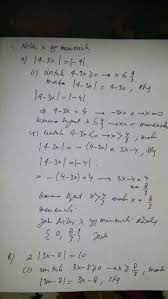 Nilai x yg memenuhi
a) |4-3x| = |-4|
(i) Untuk 4-3x ≥ 0 → x ≤ 4/3
maka |4-3x| = 4-3x, shg
|4-3x| = |-4|
4-3x = 4 → -3x = 0 → x = 0
karena x ≤ 4/3 → x = 0 memenuhi
(ii) Untuk 4-3x < 0 → x > 4/3, mak
|4-3x| = -(4-3x) = 3x-4, shg
|4-3x| = |-4|
-(4-3x) = 4 → 3x-4 = 4
x = 8/3
karena x > 4/3 maka x = 8/3
memenuhi
jadi Nilai x yg memenuhi
{0, 8/3}
b) 2|3x-8| = 10
(i) Untuk 3x-8 ≥ 0 → x ≥ 8/3, mak
|3x-8| = 3x-8, shg